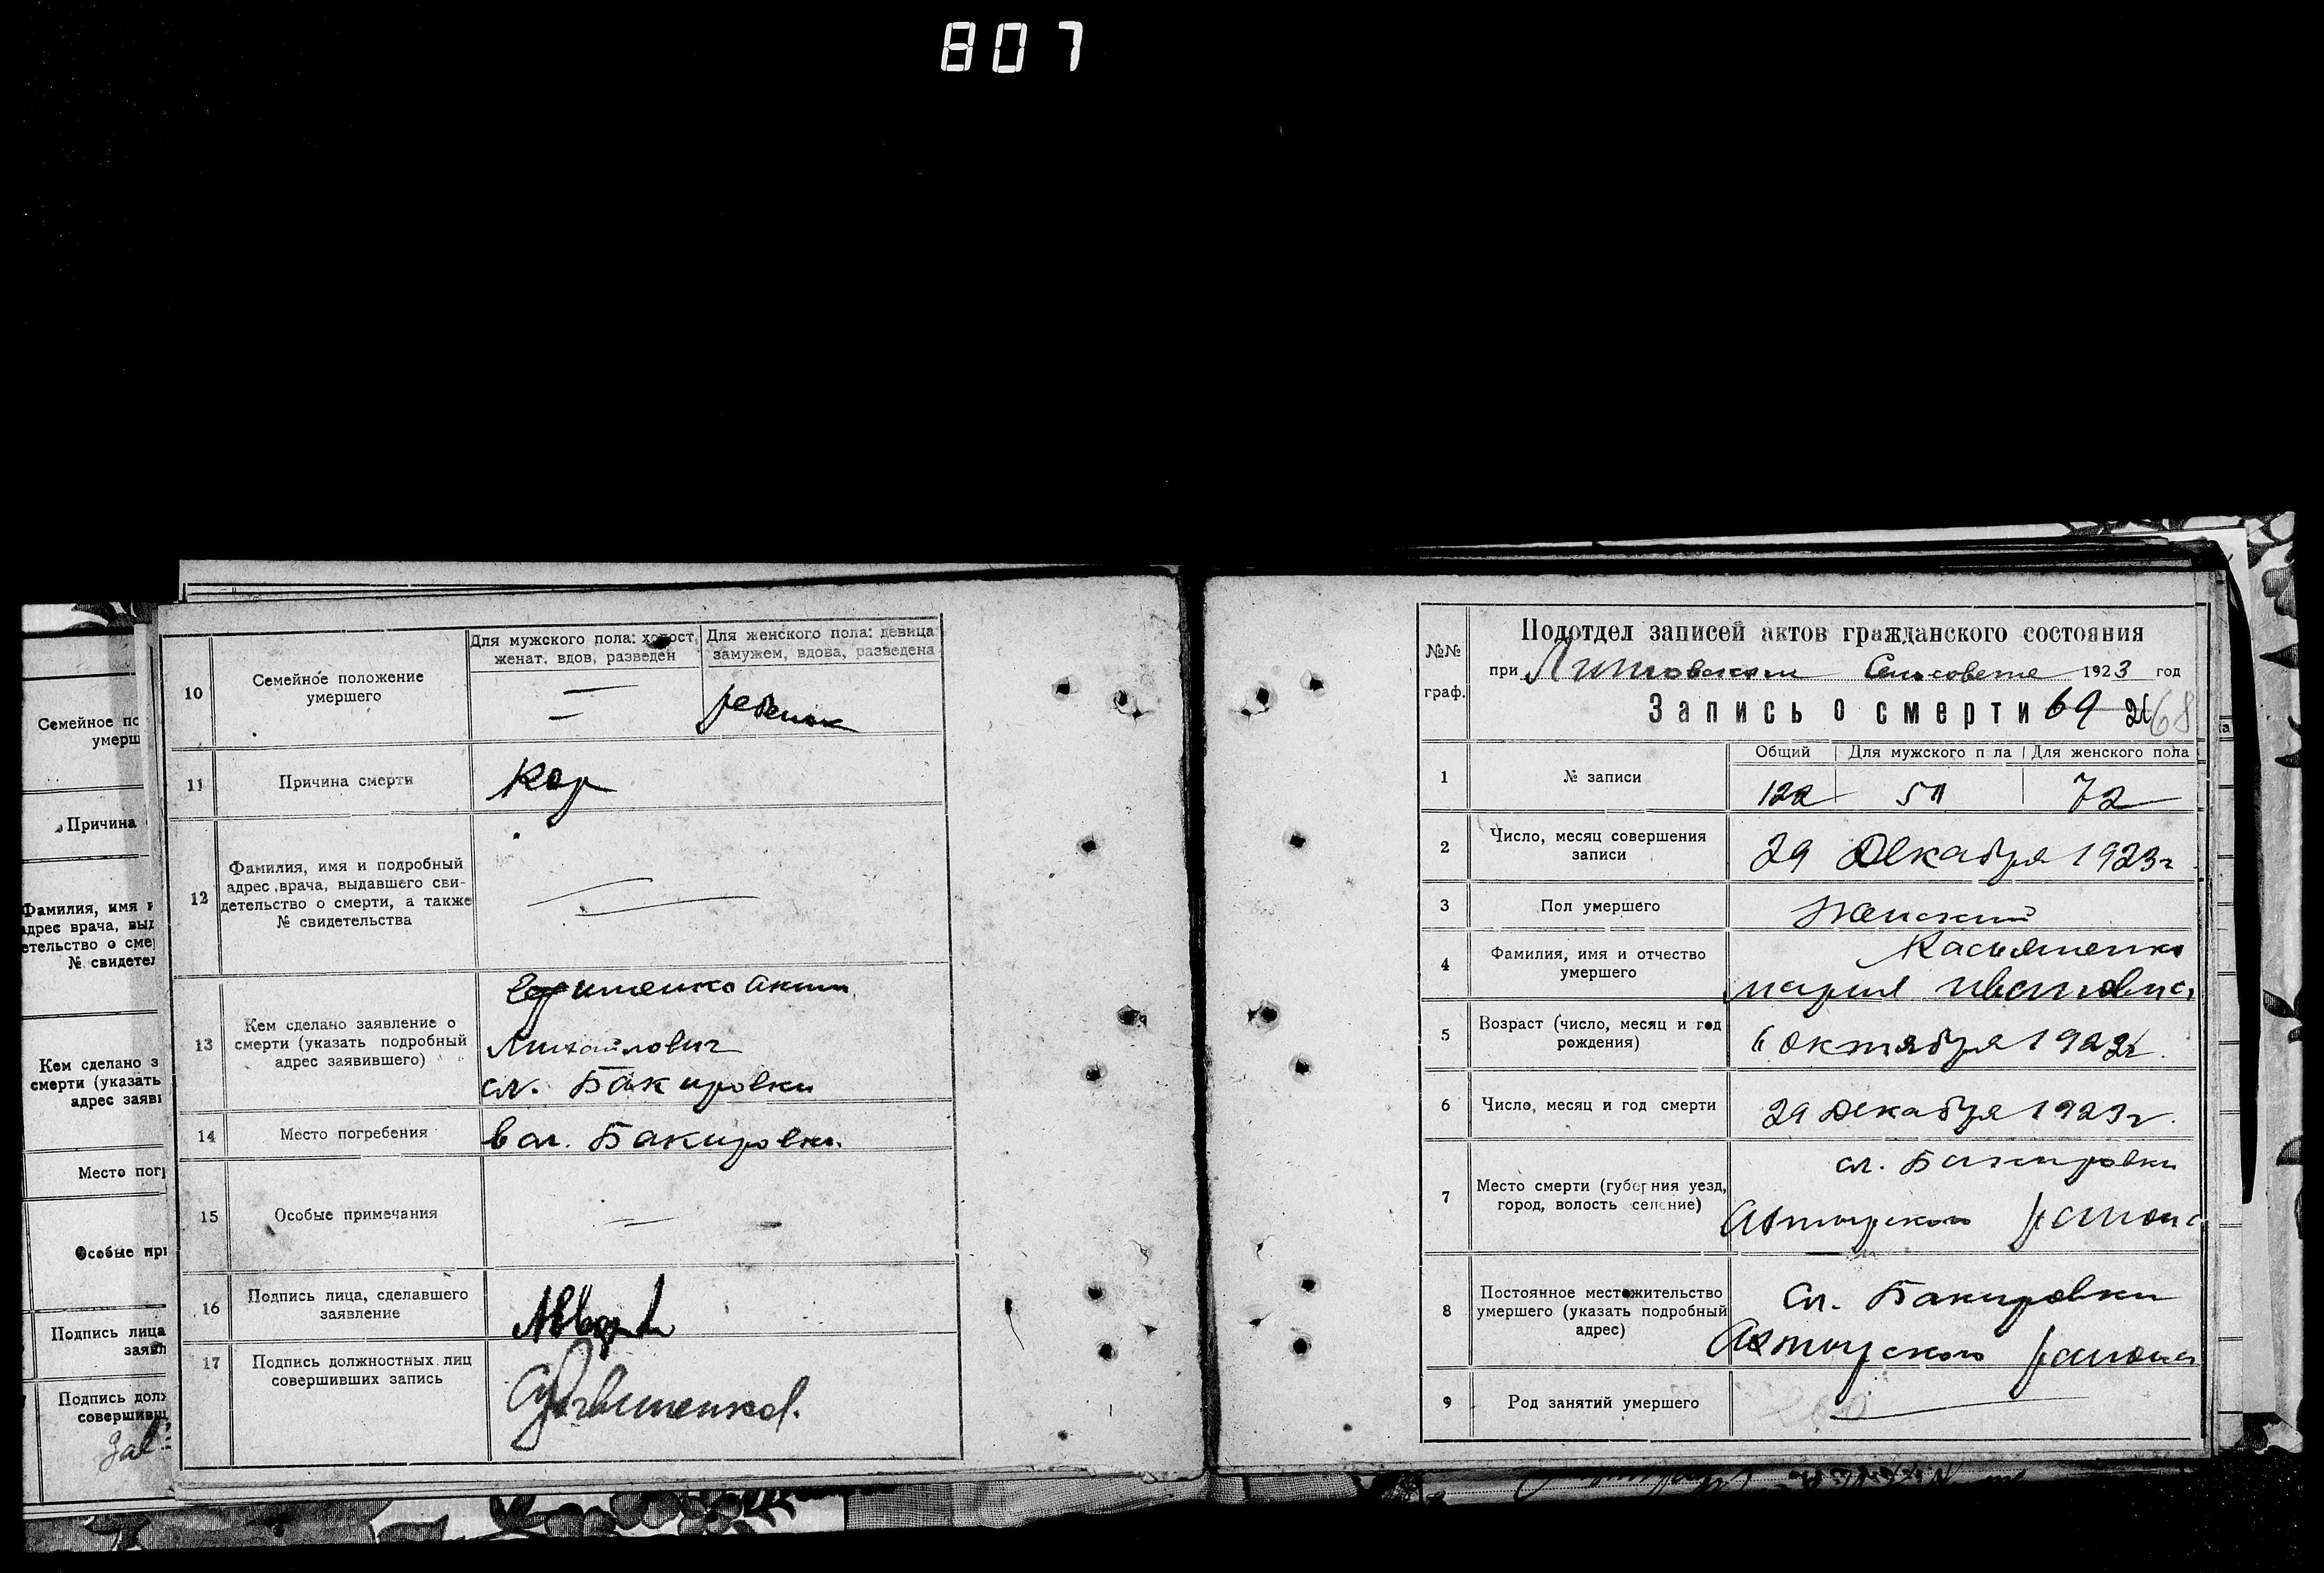 807
Семейное по
умерш
Причина
Фамилия, имя и
дрес врача, выд
етельство о сме
№ свидетел
Кем сделано з
смерти (указать
адрес заяви
Место погр
Особые при
Подпись лица
заявл
Подпись долж
совершивш
Зав
10
Семейное положение
умершего
Для мужского пола: холост,
женат, вдов, разведен
Для женского пола: девица
замужем, вдова, разведена
ребенок
11
Причина смерти
Кор
12
Фамилия, имя и подробный
адрес врача, выдавшего сви-
детельство о смерти, а также
№ свидетельства
13
Кем сделано заявление о
смерти (указать подробный
адрес заявившего)
Михайлович
сл. Бакировки
14
Место погребения
в сл. Бакировки
15
Особые примечания
16
Подпись лица, сделавшего
заявление
17
Подпись должностных лиц
совершивших запись
№№
граф.
Подотдел записей актов гражданского состояния
при Сельсовете 1923 год
Запись о смерти 69 68
1
№ записи
Общий
Для мужского п ла
Для женского пола
122
72
2
Число, месяц совершения
записи
29 Декабря 1923 г
3
Пол умершего
Женский
4
Фамилия, имя и отчество
умершего
Касьяненко
Мария Ивановна
5
Возраст (число, месяц и год
рождения)
Октября
6
Число, месяц и год смерти
29 Декабря 1923 г.
7
Место смерти (губерния уезд,
город, волость селение)
сл. Бакировки
Ахтырского района
8
Постоянное местожительство
умершего (указать подробный
адрес)
Сл. Бакировки
Ахтырского района
9
Род занятий умершего